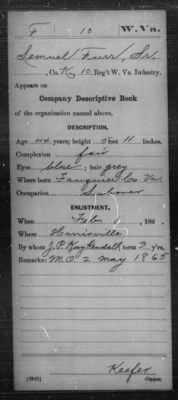 F 10 W.Va.
Samuel Furr, Sr.
, Co. K, 10 Reg't W. Va. Infantry.
Appears on
Company Descriptive Book
of the organization named above.
DESCRIPTION.
Age 44 years; height 5 feet 11 inches.
Complexion fair
Eyes blue; hair grey
Where born Fauquier Co. Va.
Occupation Laborer
ENLISTMENT.
When Feb. 1, 186 .
Where Harrisville
By whom J.P. Kuykendall; term 3 y'rs.
Remarks: M.O. 2 May 1865
Keefer
Copyist.